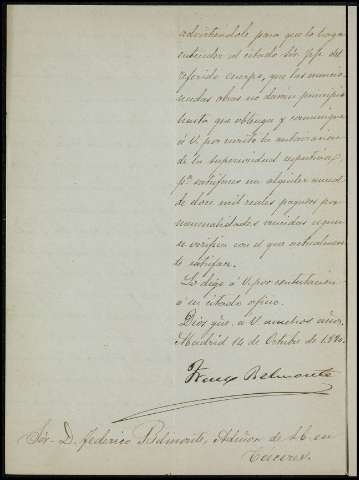 advirtiéndole para que lo haga
entender al citado Sór. Jefe del
referido cuerpo, que las mencio
nadas obras no darán principio
hasta que obtenga y comunique
á V. por escrito la autorizacion
de la superioridad respectiva,
pª satisfacer un alquiler anual
de doce mil reales pagados por
mensualidades vencidas segun
se verifica con el que actualmente
se satisface.
Lo digo á V. por contestacion
á su citado oficio.
Dios gue. á V. muchos años.
Madrid 14 de Octubre de 1880.
Belmonte
Sór. D. Federico Belmonte, Admor. de LC en
Caceres.